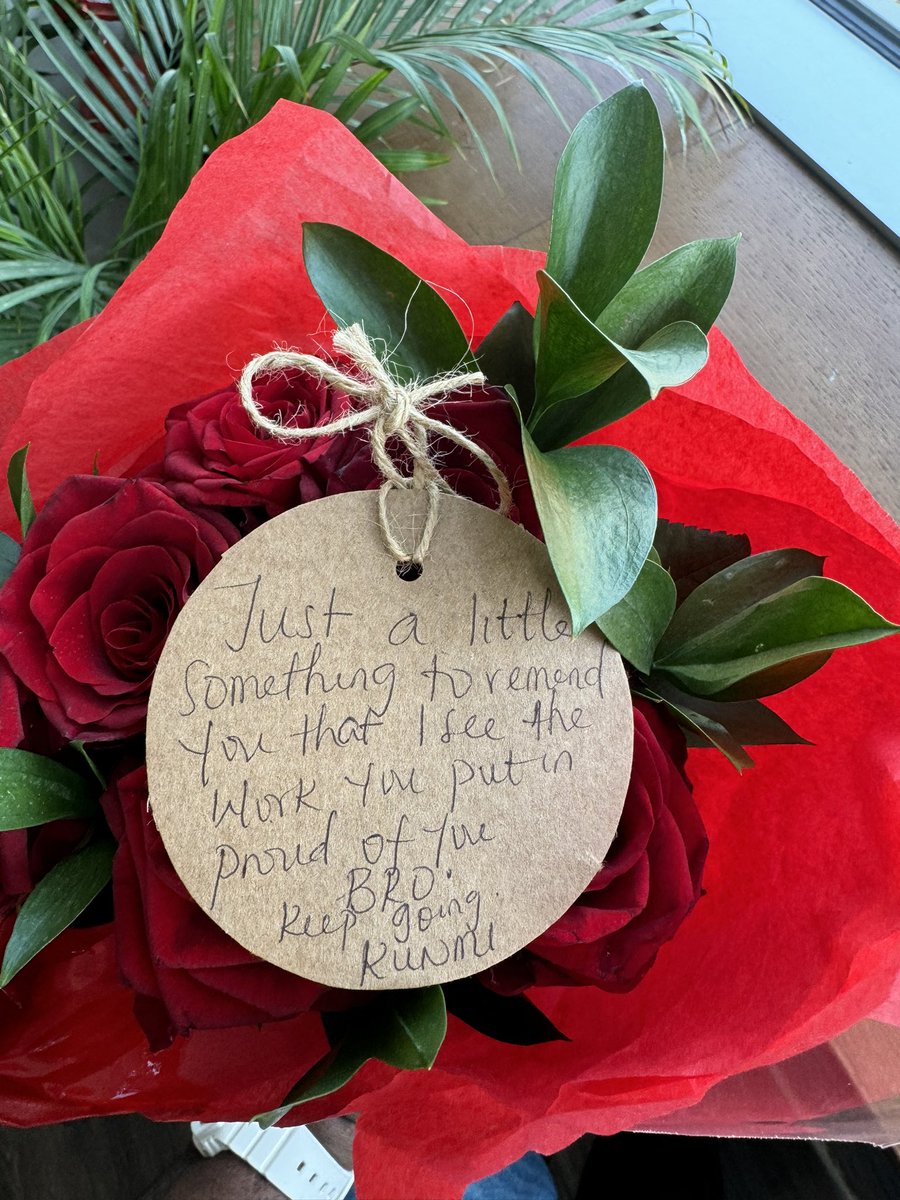 Just a little
Something to remend
You that I see the
Work You put in
proud of you
BRO.
Keep going.
KUNMI